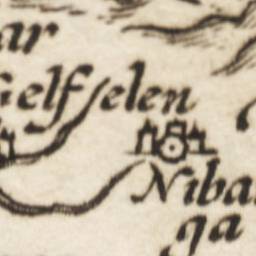 ar
Gelfſelen
Niba
ga